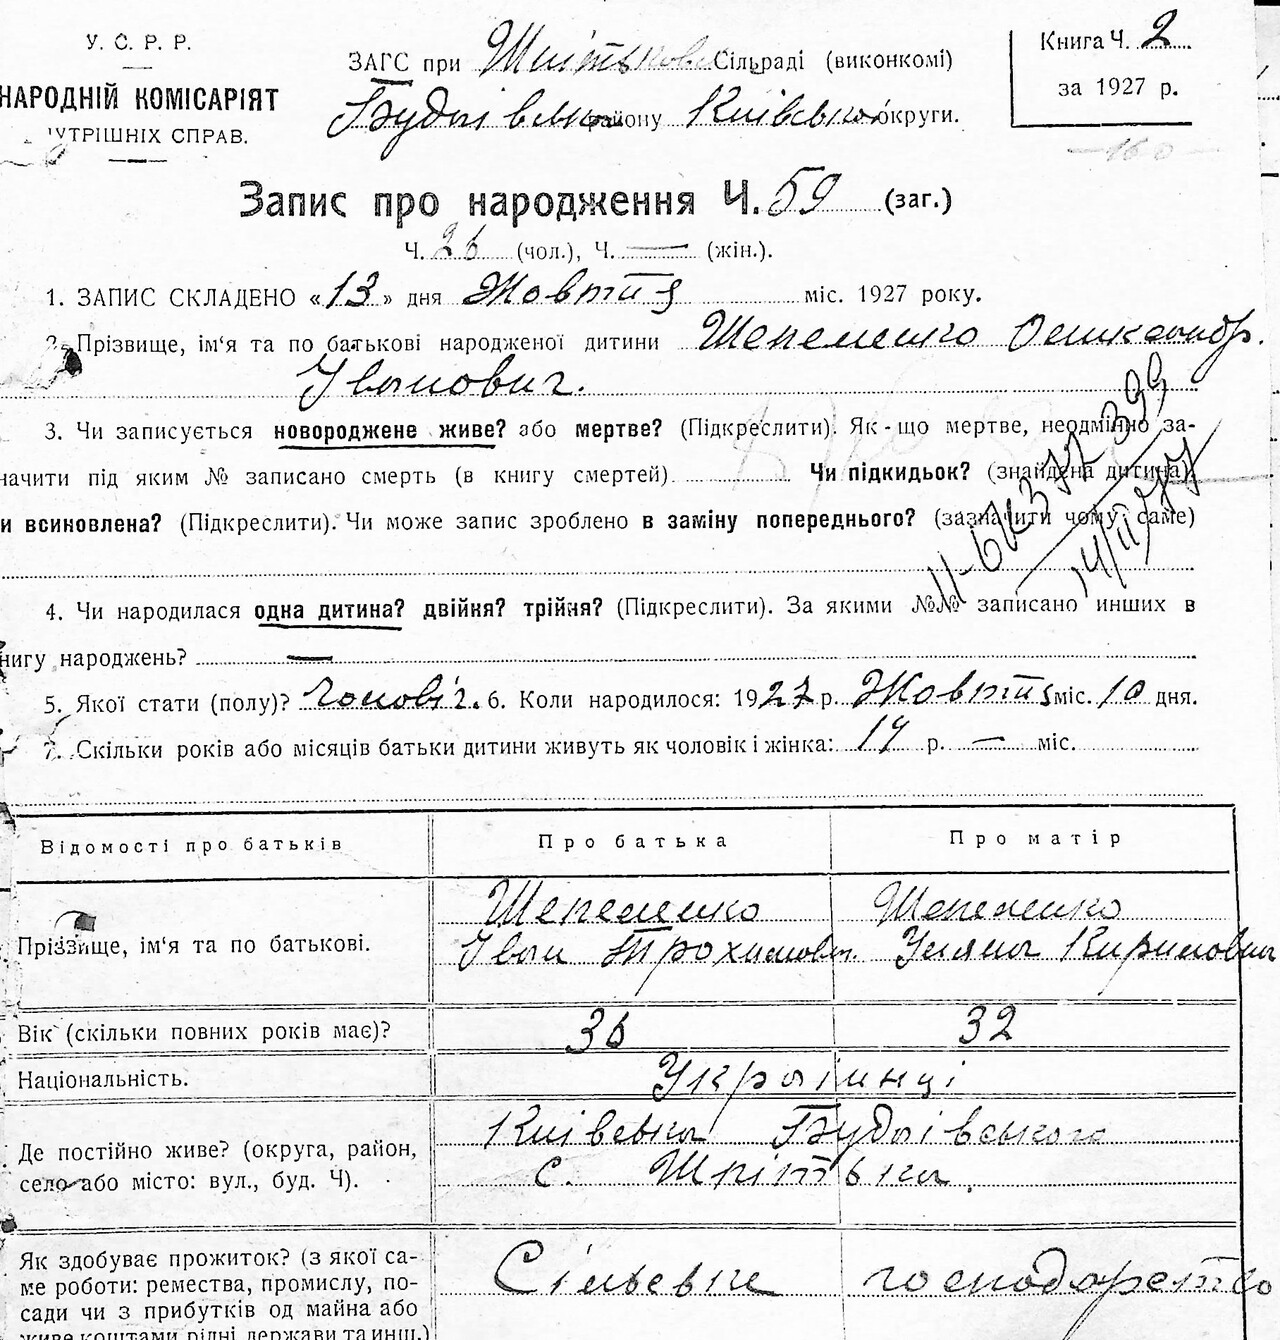 У. С. Р. Р.
НАРОДНІЙ КОМІСАРІЯТ
УТРІШНІХ СПРАВ.
ЗАГС при Сільраді (виконкомі)
району Київської округи.
Книга Ч. 2
за 1927 р.
160
Запис про народження Ч. 59 (заг.)
Ч. 26 (чол.), Ч. — (жін.).
1. ЗАПИС СКЛАДЕНО «13» дня Жовтня міс. 1927 року.
2. Прізвище, ім'я та по батькові народженої дитини Шепеленко Олександр.
Іванович.
3. Чи записується новороджене живе? або мертве? (Підкреслити). Як-що мертве, неодмінно за-
начити під яким № записано смерть (в книгу смертей). Чи підкидьок? (знайдена дитина)
и всиновлена? (Підкреслити). Чи може запис зроблено в заміну попереднього? (зазначити чому саме)
14/II 77
4. Чи народилася одна дитина? двійня? трійня? (Підкреслити). За якими №№ записано инших в
нигу народжень? —
5. Якої стати (полу)? Чоловіч. 6. Коли народилося: 1927 р. Жовтня міс. 10 дня.
7. Скільки років або місяців батьки дитини живуть як чоловік і жінка: 14 р. — міс.
Відомості про батьків Про батька Про матір
Шепеленко Шепеленко
Прізвище, ім'я та по батькові. Іван Трохимович. Уляна Киримовна
Вік (скільки повних років має)? 36 32
Національність. Українці
Київська Будаївського
Де постійно живе? (округа, район,
село або місто: вул., буд. Ч). с. Шпітьки.
Як здобуває прожиток? (з якої са-
ме роботи: ремества, промислу, по- Сільське господарство
сади чи з прибутків од майна або
живе коштами рідні, держави та инш.)